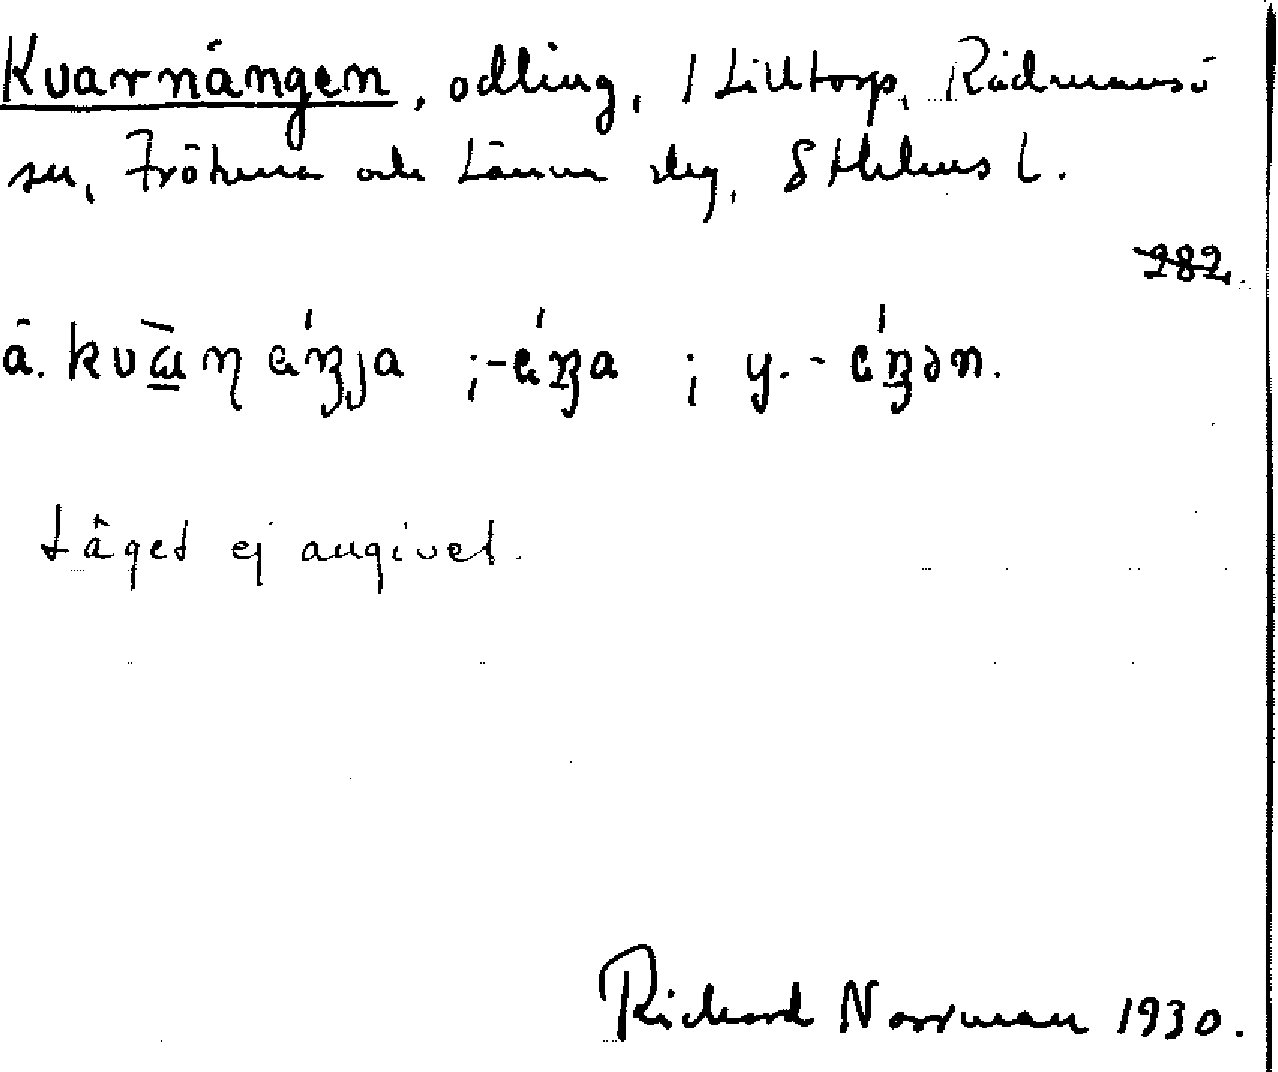 Kvarnängen, odling, 1 Lilltorp, Rådmansö
sn, Frötuna och Länna slg, Sthlms l.
282.
ä. kvàɯ ŋ
y.
Läget ej angivet.
Richard Norrman 1930.